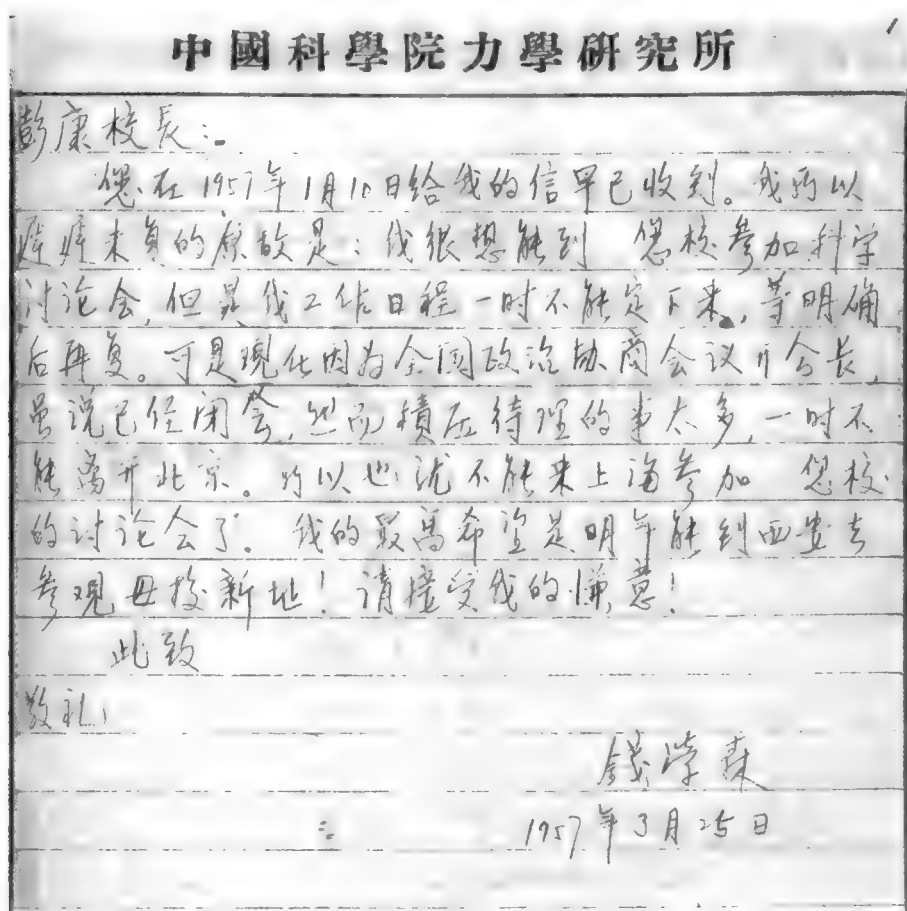 1
中國科學院力學研究所
彭康校长：
您在1957年1月10日给我的信早已收到。我所以
迟迟未复的原故是：我很想能到 您校参加科学
讨论会，但是我工作日程一时不能定下来，等明确
后再复。可是现在因为全国政治协商会议开会长，
虽说已经闭会，然而積压待理的事太多，一时不
能离开北京。所以也就不能来上海参加 您校
的讨论会了。我的最高希望是明年能到西安去
参观母校新址！请接受我的歉意！
此致
敬礼！
錢学森
1957年3月25日